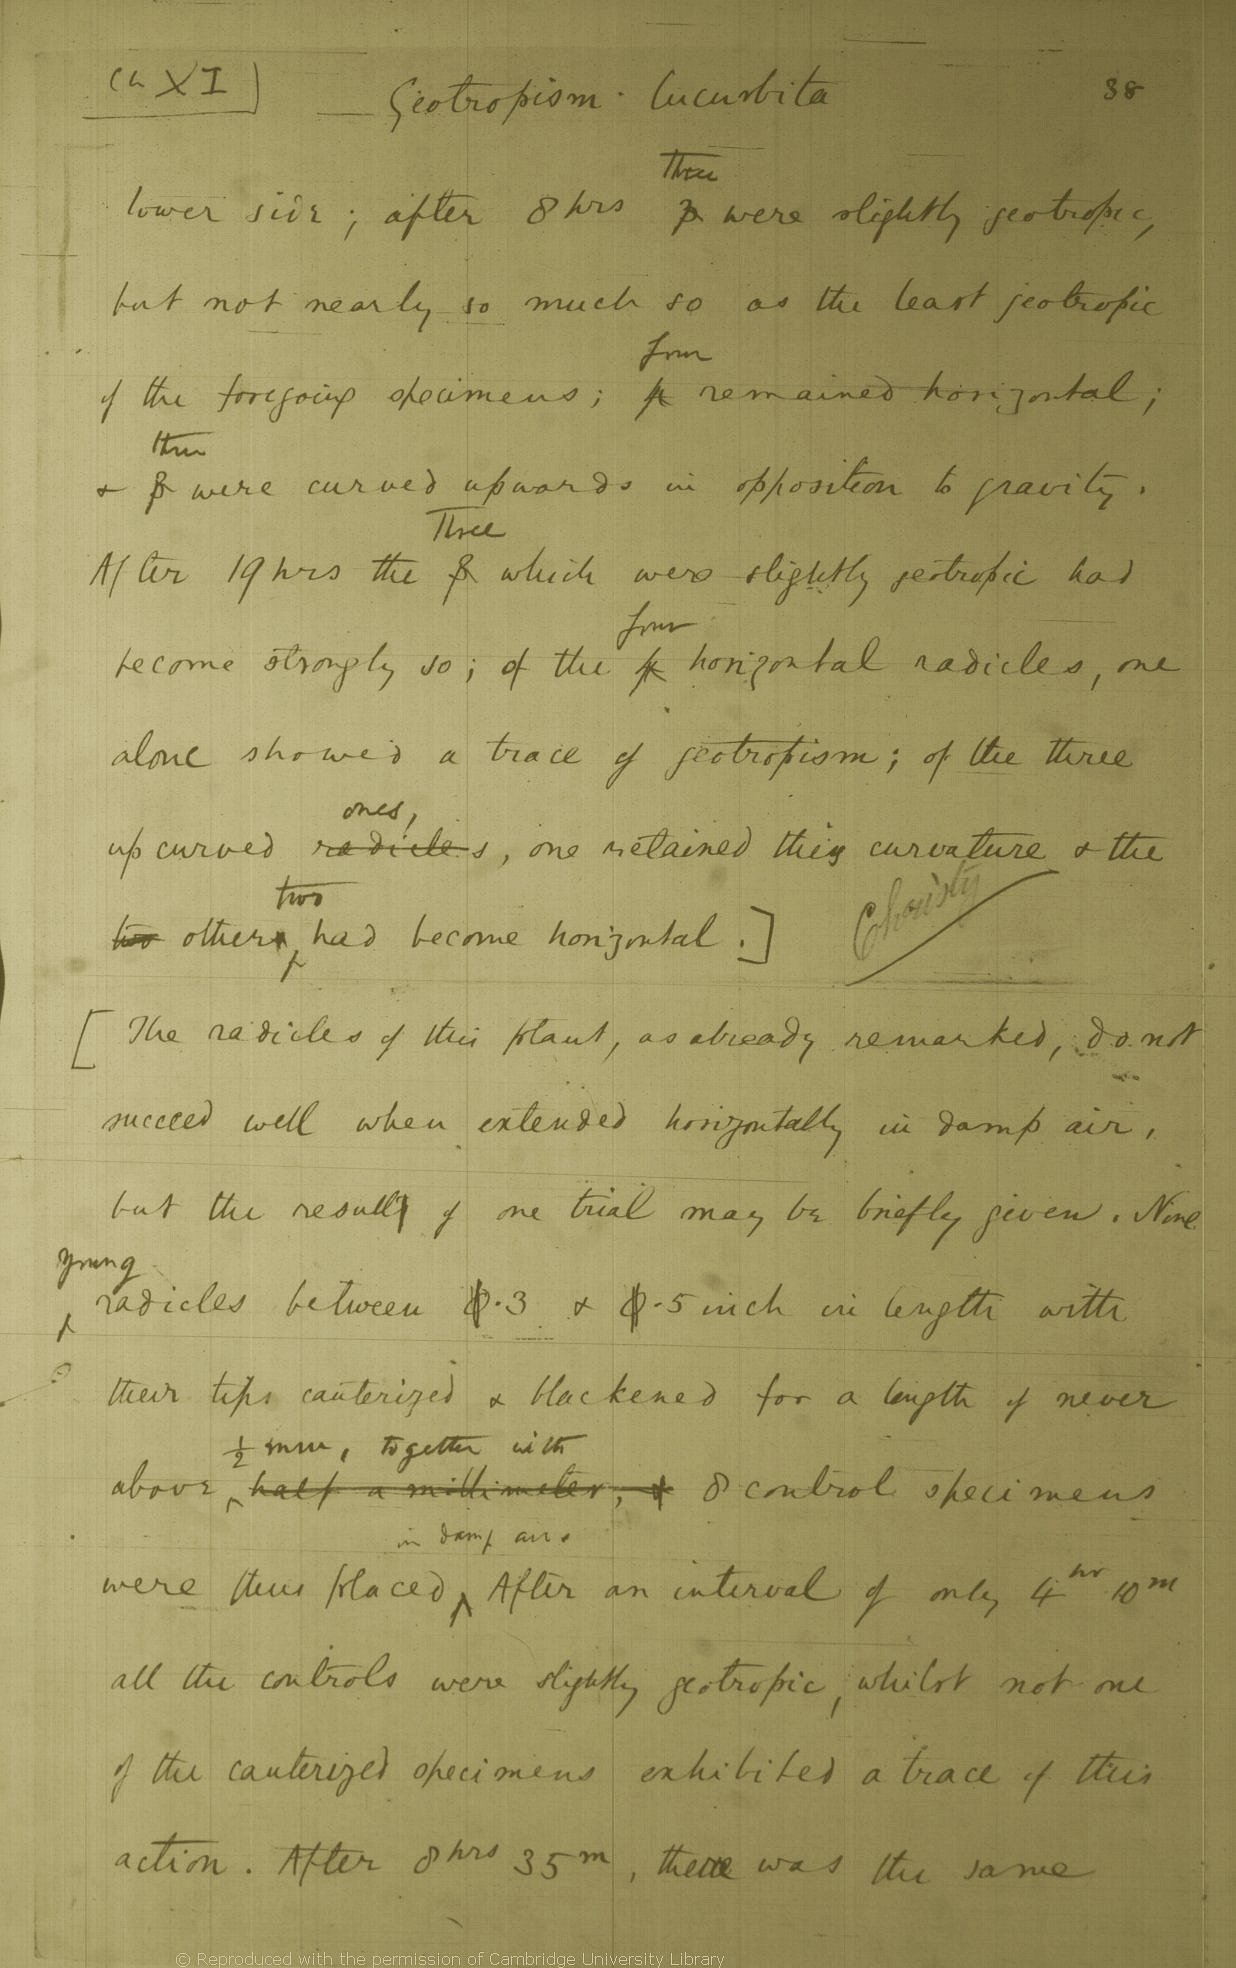 Ch XI
Geotropism. Cucurbita
38
three
lower side; after 8 hrs 3 were slightly geotropic,
but not nearly so much so as the least geotropic
four
of the foregoing specimens; 4 remained horizontal;
three
& 3 were curved upwards in opposition to gravity.
Three
After 19 hrs the 3 which were slightly geotropic had
four
become strongly so; of the 4 horizontal radicles, one
alone showed a trace of geotropism; of the three
ones,
up curved radicles, one retained this curvature & the
two
two others had become horizontal.]
Christy
[The radicles of this plant, as already remarked, do not
succeed well when extended horizontally in damp air,
but the result of one trial may be briefly given. Nine
young
radicles between 0.3 & 0.5 inch in length with
their tips cauterized & blackened for a length of never
½ mm, together with
above half a millimeter, & 8 control specimens
in damp air.
were thus placed After an interval of only 4 hr 10 m
all the controls were slightly geotropic, whilst not one
of the cauterized specimens exhibited a trace of this
action. After 8 hrs 35 m, there was the same
© Reproduced with the permission of Cambridge University Library